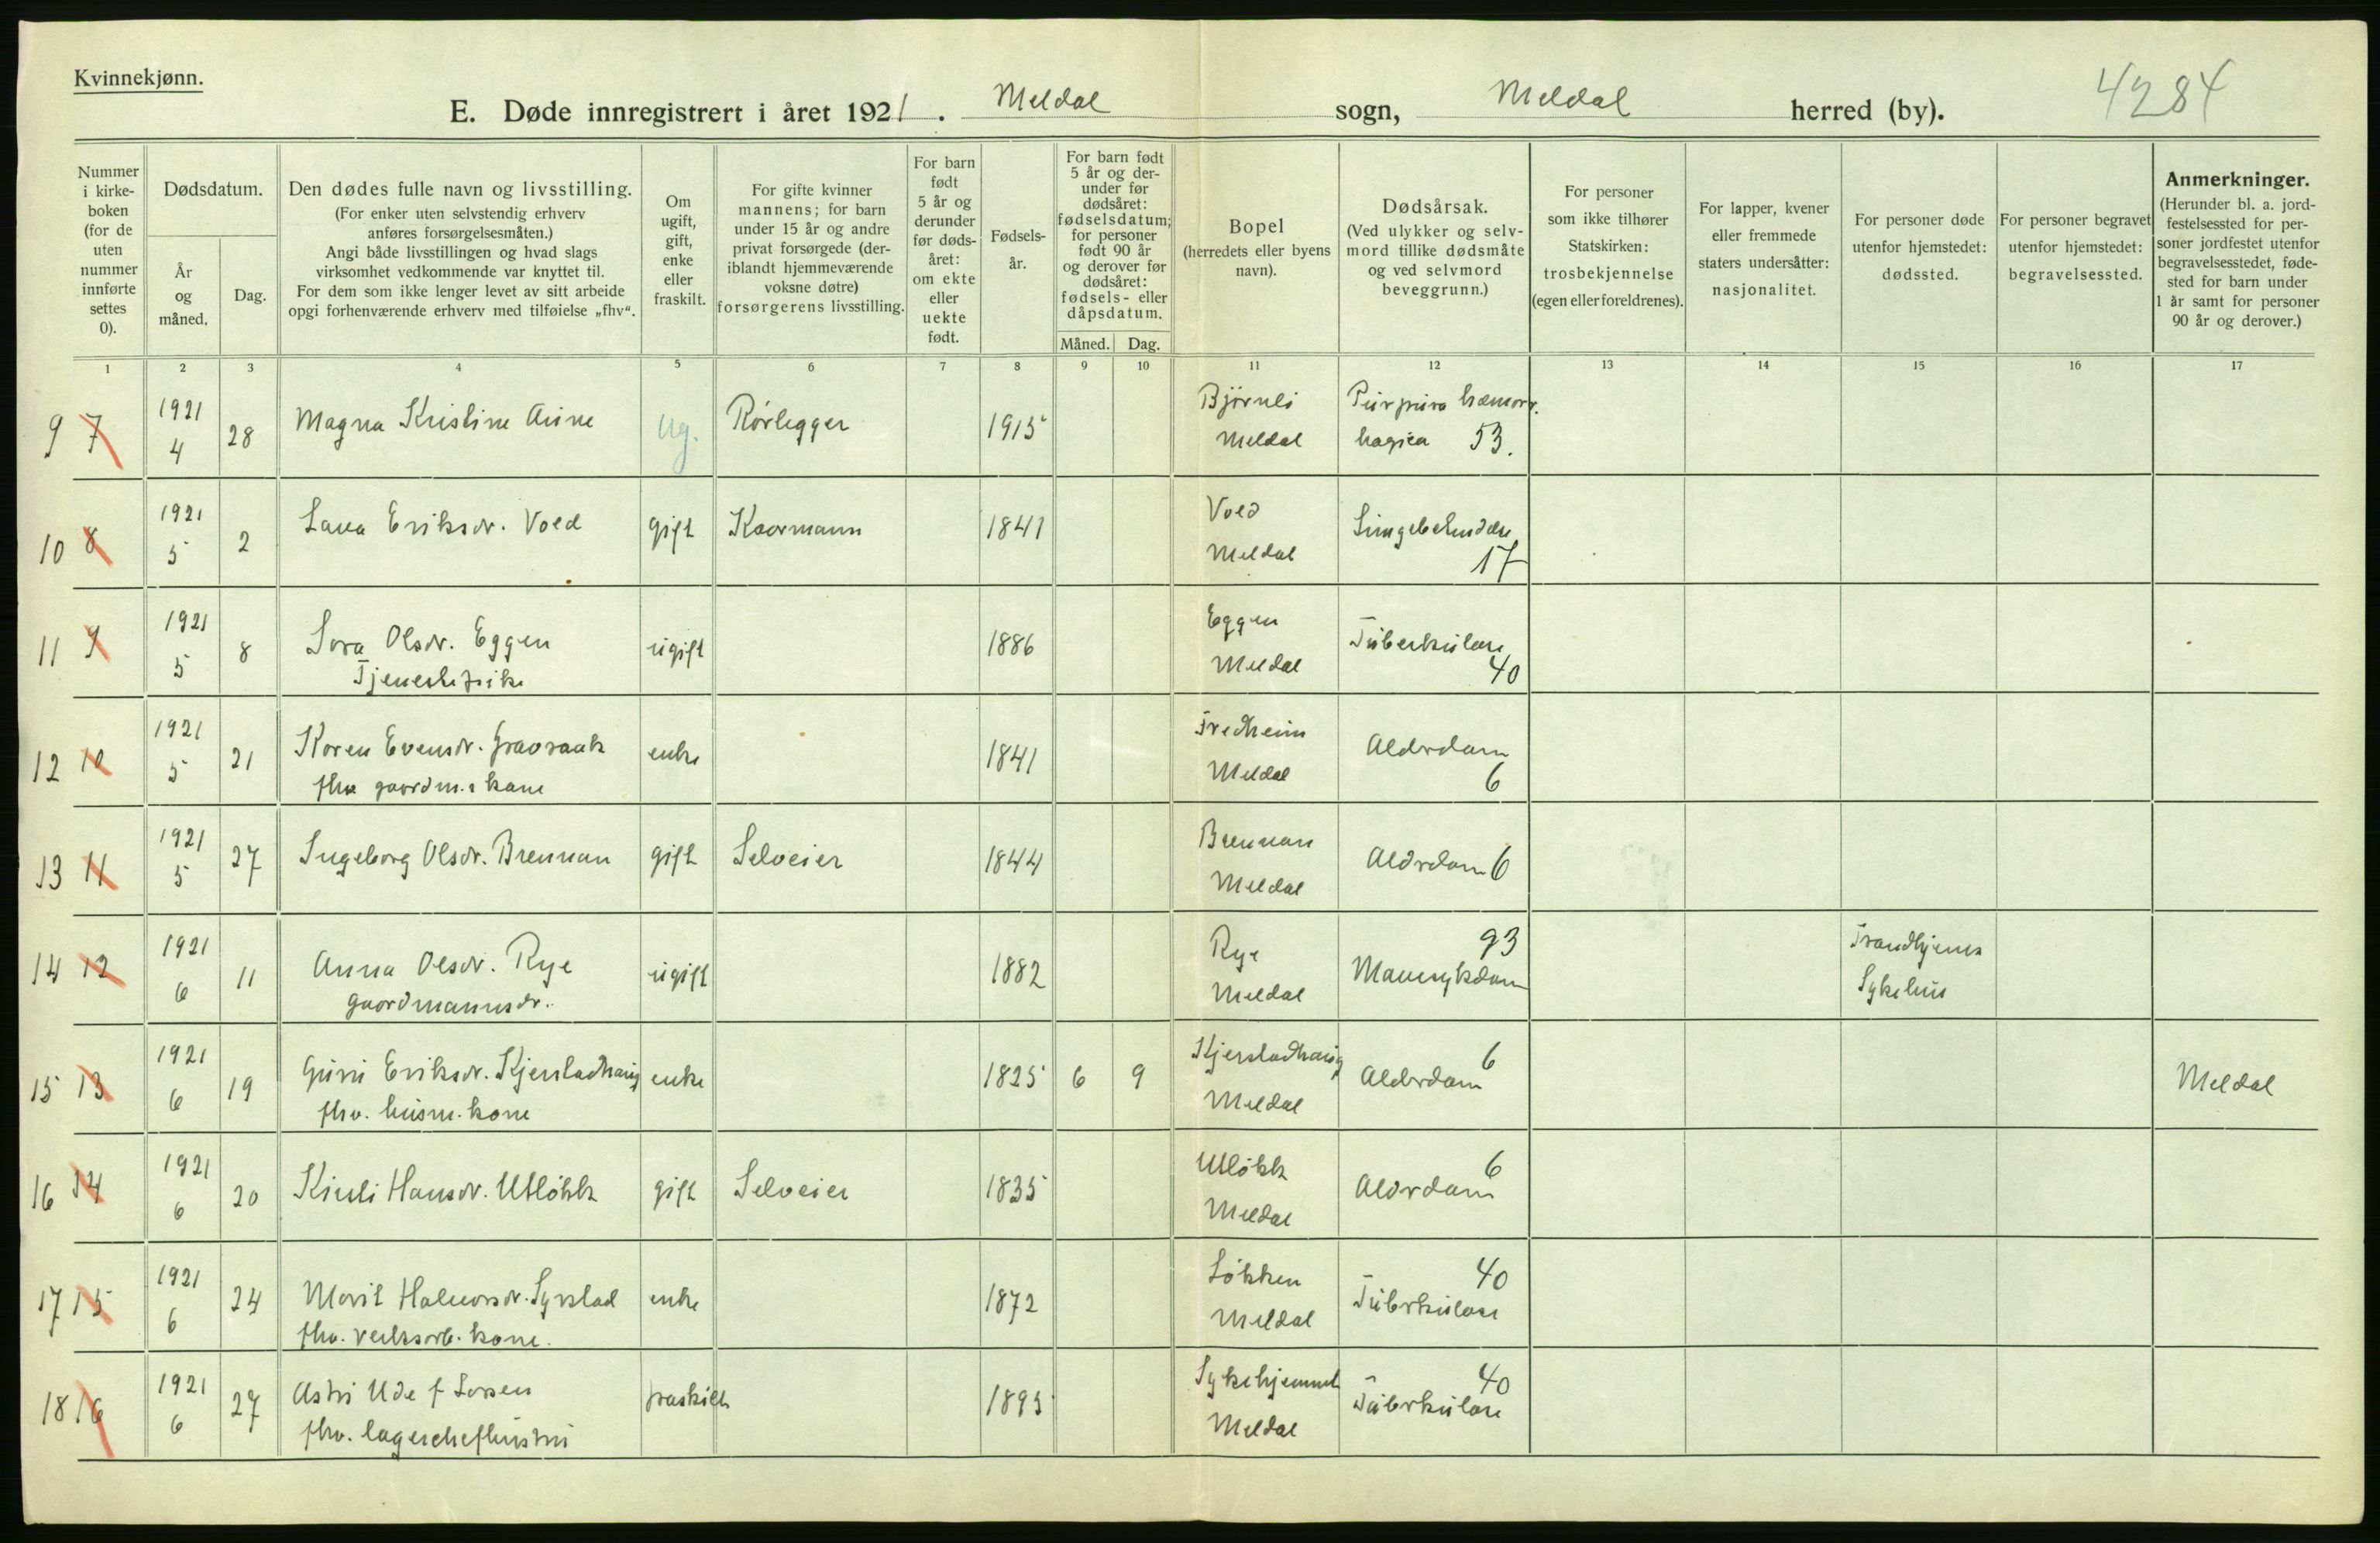 Kvinnekjønn.
E. Døde innregistrert i året 1921. Meldal sogn, Meldal herred (by). 4284
Nummer i kirkeboken (for de uten nummer innførte settes 0).
Dødsdatum.
År og måned.
Dag.
Den dødes fulle navn og livsstilling.
(For enker uten selvstendig erhverv
anføres forsørgelsesmåten.)
Angi både livsstillingen og hvad slags
virksomhet vedkommende var knyttet til.
For dem som ikke lenger levet av sitt arbeide
opgi forhenværende erhverv med tilføielse „fhv“.
Om ugift, gift, enke eller fraskilt.
For gifte kvinner
mannens; for barn
under 15 år og andre
privat forsørgede (der-
iblandt hjemmeværende
voksne døtre)
forsørgerens livsstilling.
For barn født 5 år og derunder før dødsåret: om ekte eller uekte født.
Fødsels-
år.
For barn født
5 år og der-
under før
dødsåret:
fødselsdatum;
for personer
født 90 år
og derover før
dødsåret:
fødsels- eller
dåpsdatum.
Måned. Dag.
Bopel
(herredets eller byens
navn).
Dødsårsak.
(Ved ulykker og selv-
mord tillike dødsmåte
og ved selvmord
beveggrunn.)
For personer
som ikke tilhører
Statskirken:
trosbekjennelse
(egen eller foreldrenes).
For lapper, kvener
eller fremmede
staters undersåtter:
nasjonalitet.
For personer døde
utenfor hjemstedet:
dødssted.
For personer begravet
utenfor hjemstedet:
begravelsessted.
Anmerkninger.
(Herunder bl. a. jord-
festelsessted for per-
soner jordfestet utenfor
begravelsesstedet, føde-
sted for barn under
1 år samt for personer
90 år og derover.)
1 2 3 4 5 6 7 8 9 10 11 12 13 14 15 16 17
9 7 1921 4 28 Magna Kristine Aune ug. Rørlegger 1915 Bjørnli Meldal Purpura hæmorr. hagica 53.
10 8 1921 5 2 Eriksdr. Vold gift Kaarmann 1841 Vold Meldal 17
11 9 1921 5 8 Olsdr. Eggen ugift 1886 Eggen Meldal Tuberkulose 40
Tjenestepike
12 10 1921 5 21 Karen Evensdr. Gravraak enke 1841 Fredheim Meldal Alderdom 6
fhv gaardm.s kone
13 11 1921 5 27 Ingeborg Olsdr. Brennan gift Selveier 1844 Brennan Meldal Alderdom 6
14 12 1921 6 11 Anna Olsdr. Rye ugift 1882 Rye Meldal 93 Mavesykdom Trondhjems Sykehus
gaardmannsdr.
15 13 1921 6 19 Guru Eriksdr. Kjerstadhaug enke 1825 6 9 Kjerstadhaug Meldal 6 Alderdom Meldal
fhv. husm. kone
16 14 1921 6 20 Hansdr. Utløkk gift Selveier 1835 Utløkk Meldal 6 Alderdom
17 15 1921 6 24 Marit Halvorsdr. Syrstad enke 1872 Løkken Meldal 40 Tuberkulose
fhv. verksarb. kone.
18 16 1921 6 27 Astri Ude f Larsen fraskilt 1895 Sykehjemmet Meldal 40 Tuberkulose
fhv. lagerchefhustru